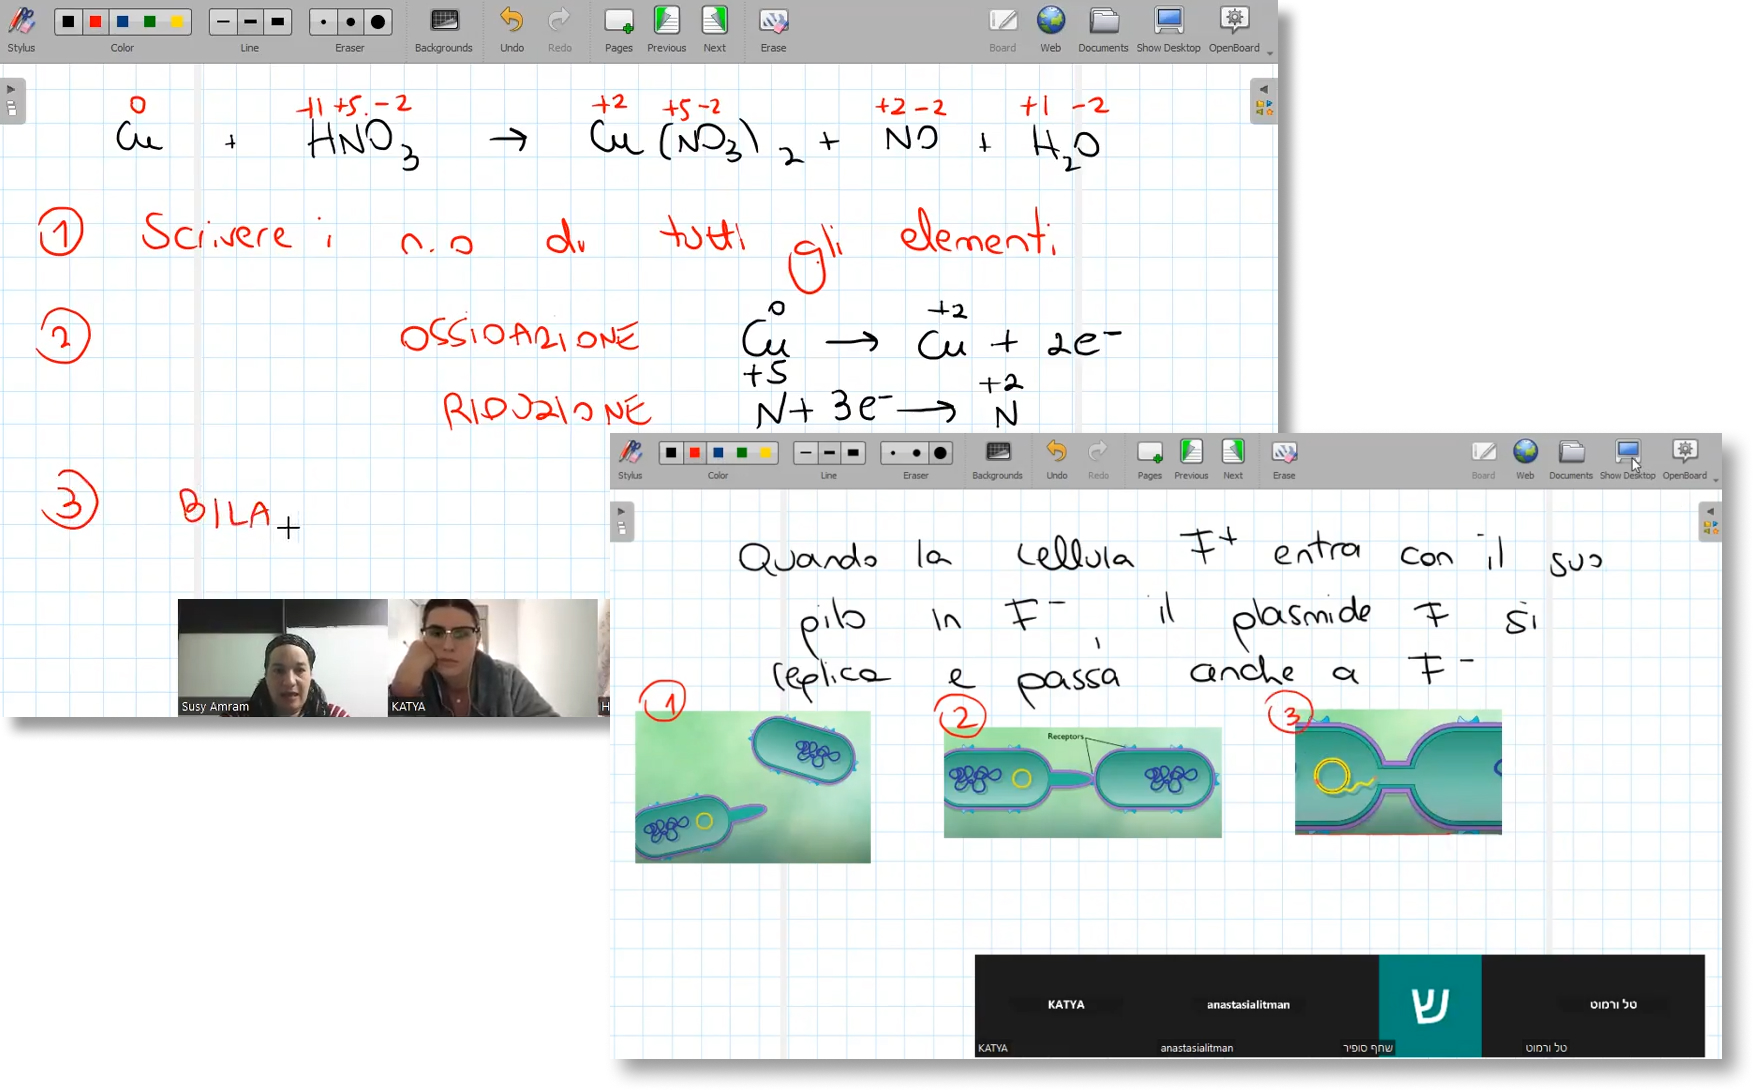 Stylus Color Line Eraser Backgrounds Undo Redo Pages Previous Next Erase Board Web Documents Show Desktop OpenBoard
0 +1 +5 -2 +2 +5 -2 +2 -2 +1 -2
Cu + HNO3 → Cu (NO3)2 + NO + H2O
1 Scrivere i n.o di tutti gli elementi
0 +2
2 OSSIDAZIONE Cu → Cu + 2e-
+5 +2
RIDUZIONE N + 3e- → N
3 BILA
Susy Amram KATYA H
Stylus Color Line Eraser Backgrounds Undo Redo Pages Previous Next Erase Board Web Documents Show Desktop OpenBoard
Quando la cellula F+ entra con il suo
pilo in F-, il plasmide F si
replica e passa anche a F-
1 2 3
Receptors
KATYA anastasialitman ש טל ורמוט
KATYA anastasialitman שחף סופיר טל ורמוט